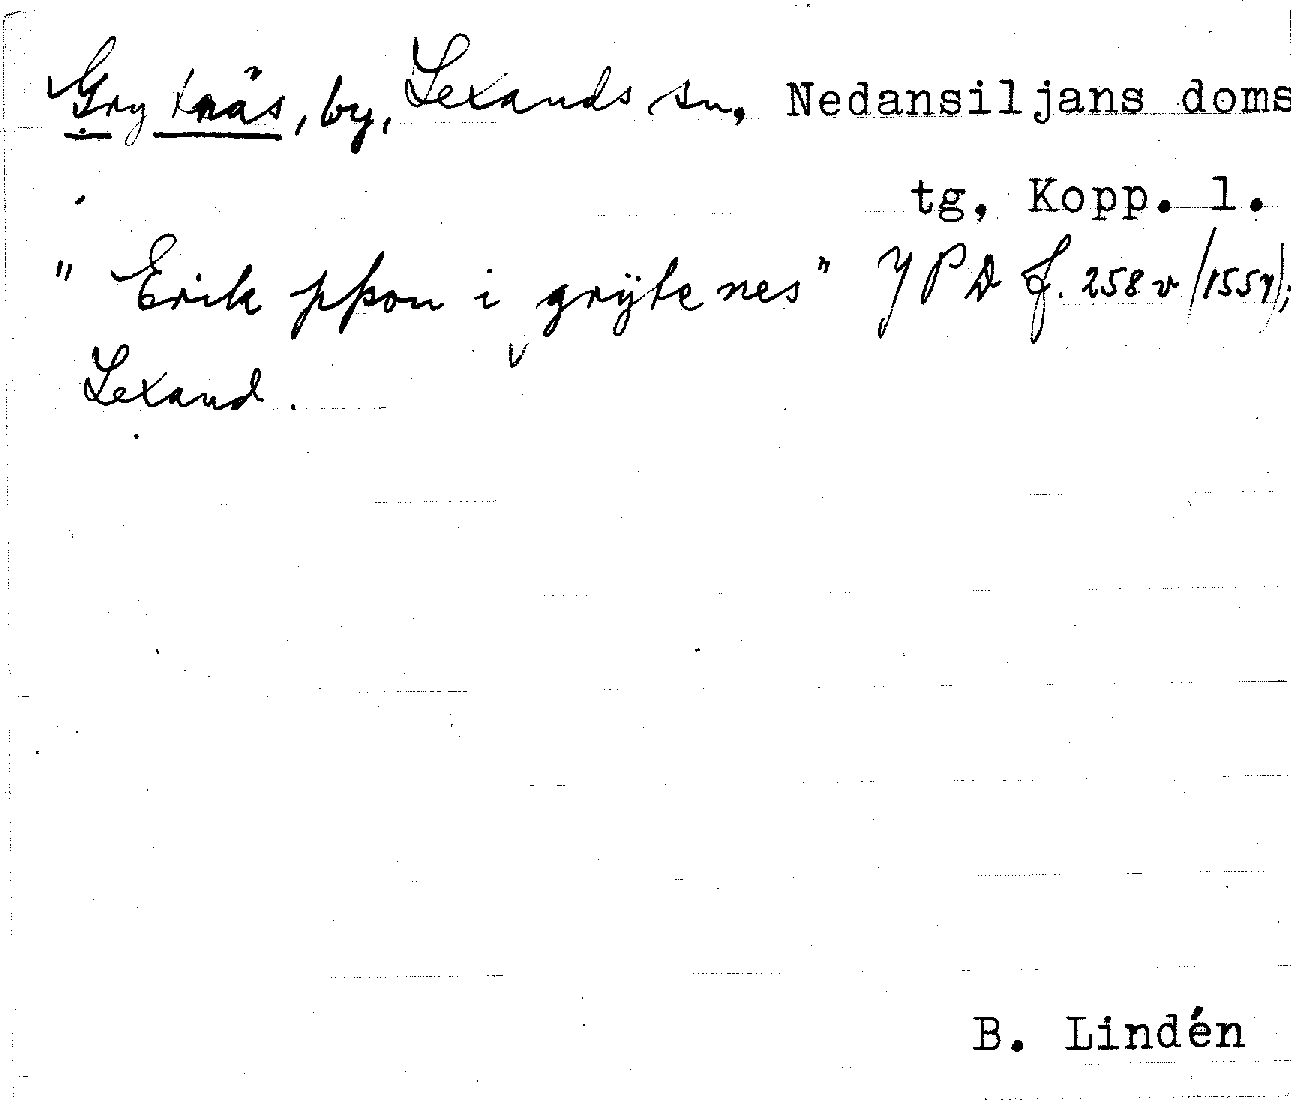 Grytnäs, by, Lexands sn, Nedansiljans doms
tg, Kopp. l.
" Erik pþon i grÿtenes" YPD f. 258 v (1557);
Lexand.
B. Lindén